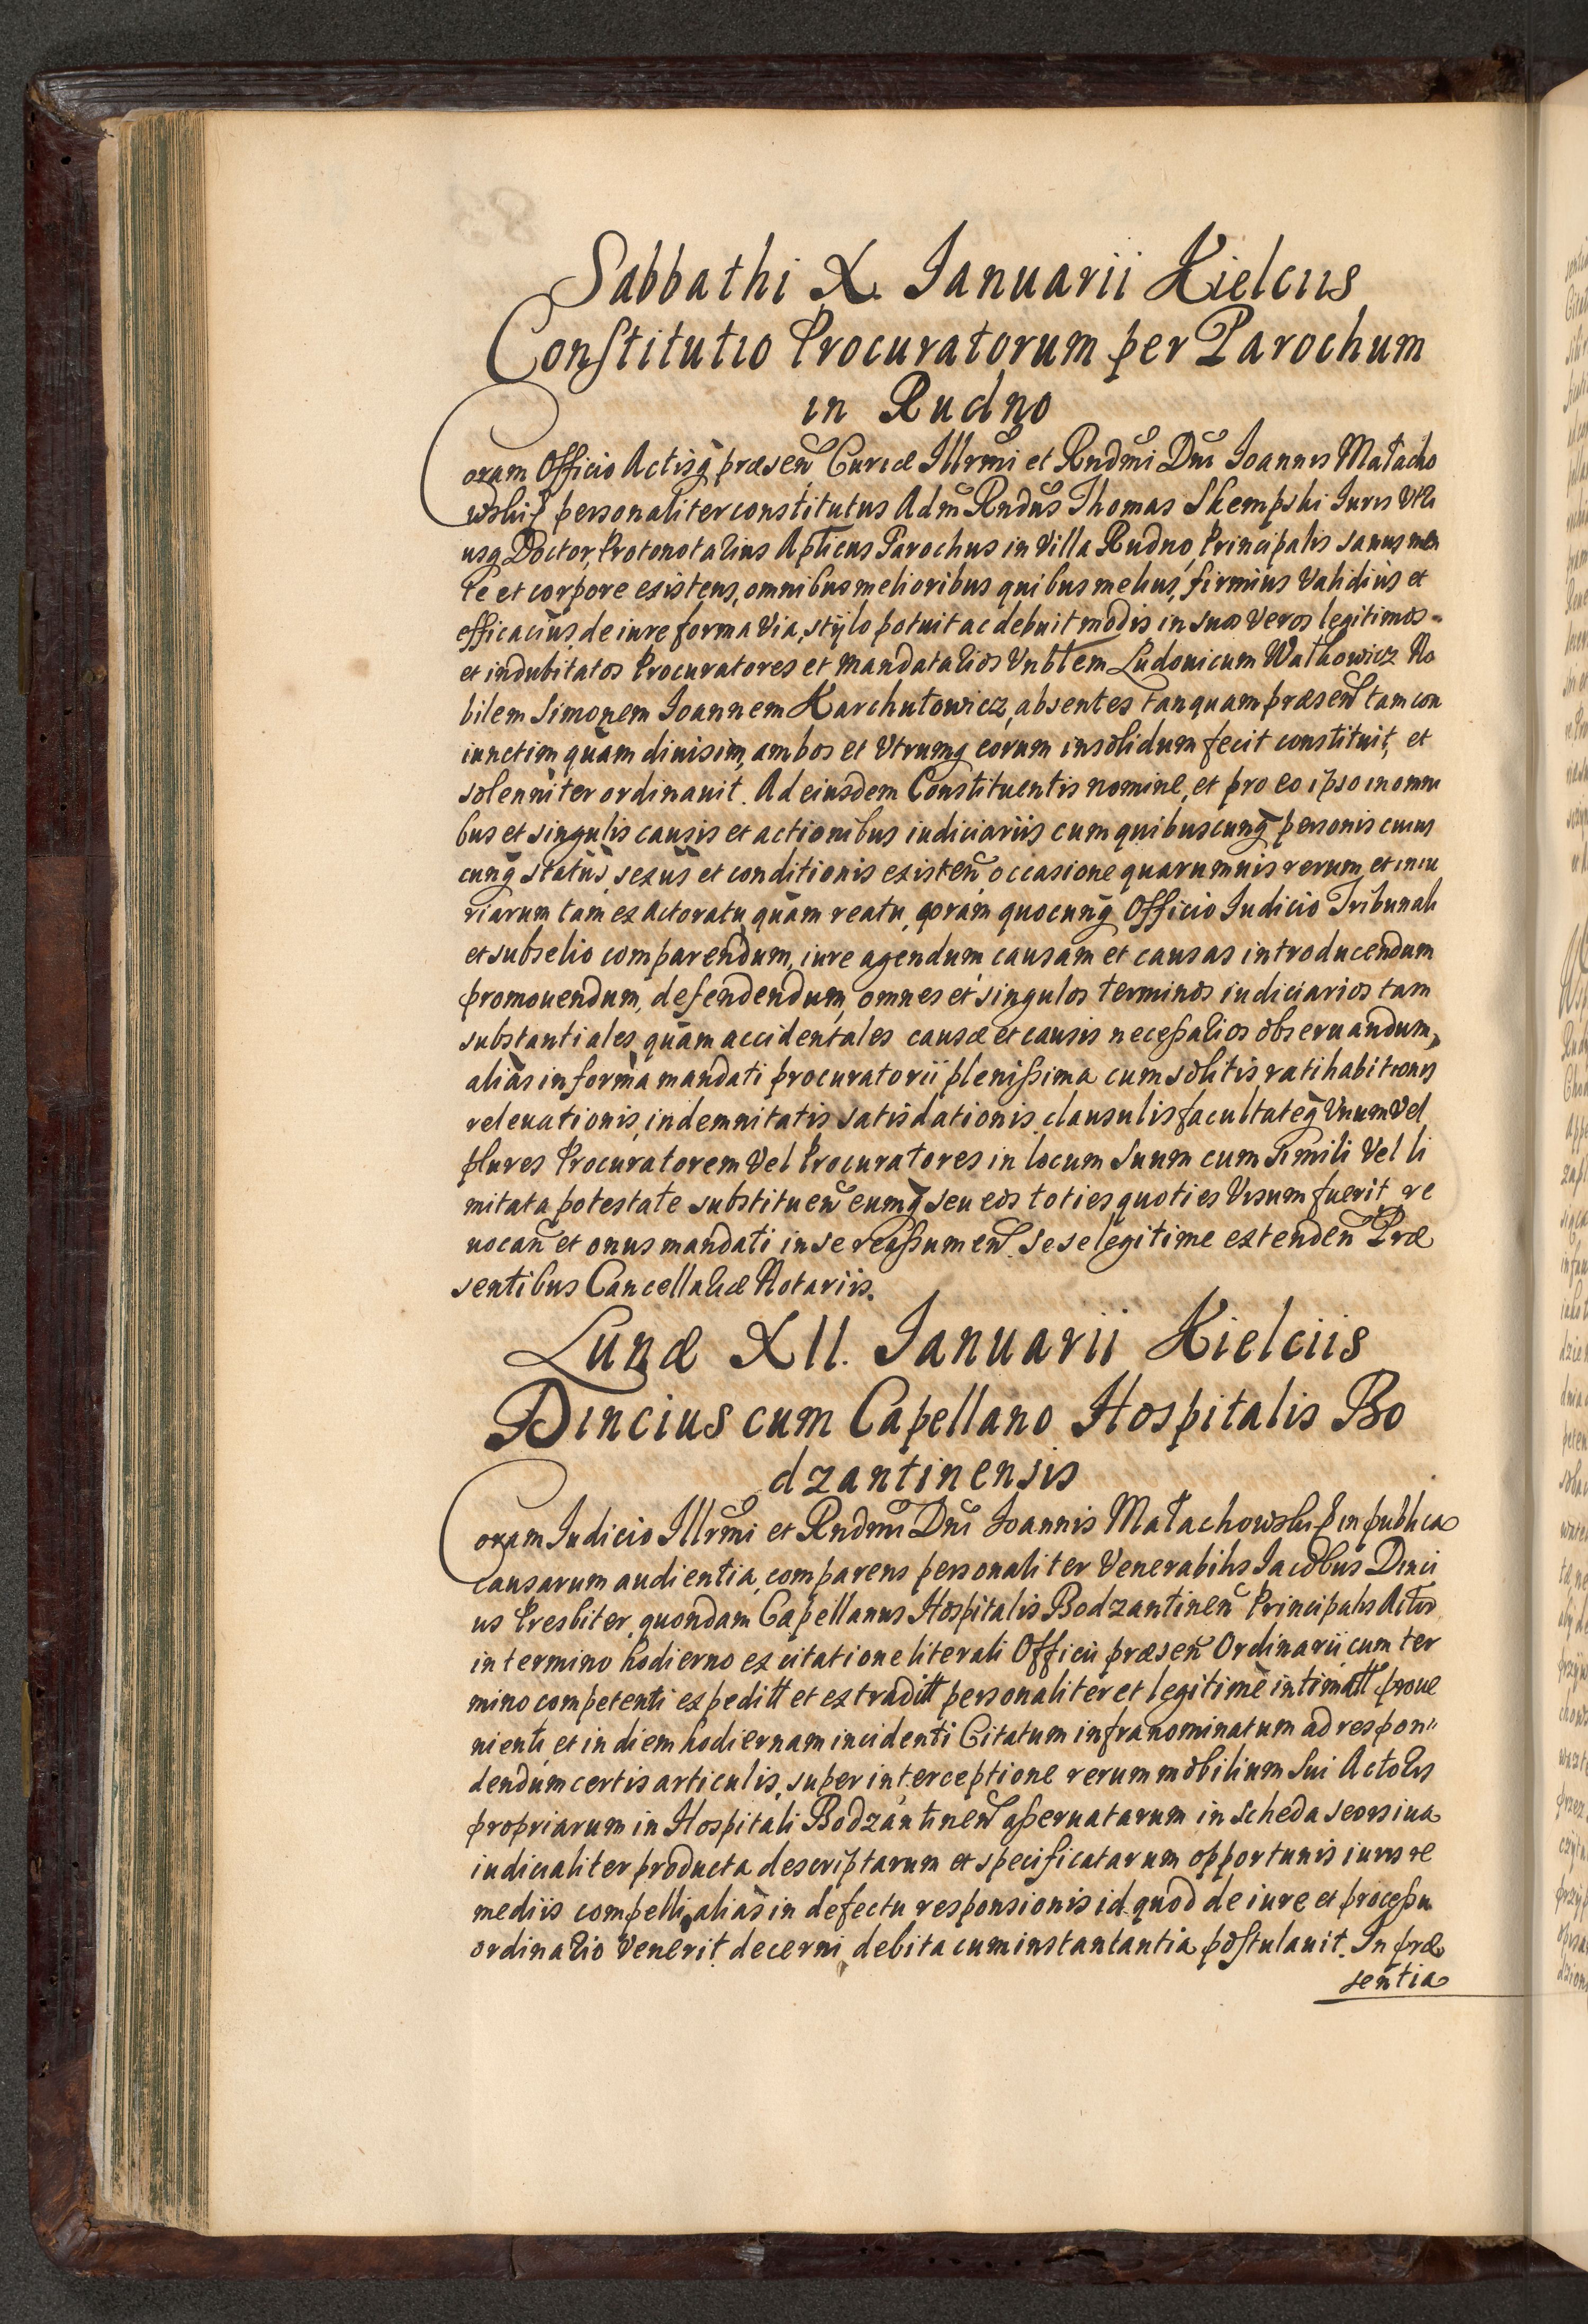 Sabbathi X. Ianuarii Kielciis
Constitutio Procuratorum per Parochum
in Rudno
Coram Officio Actisq̃ præseñ Curiæ Illrmi et Rndmi Dni Ioannis Małacho
wski personaliter constitutus Adm Rndus Thomas Skempski Iuris Utri
usq Doctor, Protonotarius Aplicus Parochus in Villa Rudno, Principalis sanus men
te et corpore existens, omnibus melioribus quibus melius, firmius Validius et
efficacius, de iure forma Via, stylo potuit ac debuit modis in suos Veros legitimos
et indubitatos Procuratores et mandatarios Vnbłem Ludouicum Wałkowicz No
bilem Simonem Ioannem Karchutowicz, absentes tanquam præseñ tam con
iunctim quàm diuisim, ambos et Vtrumq eorum insolidum fecit constituit, et
solenniter ordinauit. Ad eiusdem Constituentis nomine, et pro eo ipso in omni
bus et singulis causis et actionibus iudiciariis cum quibuscunq̃ personis cuius
cunq̃ statûs, sexûs et conditionis existeñ occasione quarumuis rerum, et iniu
riarum tam ex Actoratu, quàm reatu, coram quocunq̃ Officio Iudicio Tribunali
et subselio comparendum, iure agendum causam et causas introducendum
promouendum, defendendum, omnes et singulos terminos iudiciarios tam
substantiales, quàm accidentales causæ et causis necessarios obseruandum,
aliàs in forma mandati procuratorii plenissima cum solitis ratihabitionis
releuationis, indemnitatis satisdationis clausulis facultateq̃ Vnum Vel
plures Procuratorem Vel Procuratores in locum suum cum simili Vel li
mitata potestate substitueñ eumq̃ seu eos toties quoties Visum fuerit re
uocañ et onus mandati in se reassumeñ. sese legitime extendeñ Præ
sentibus Cancellariæ Notariis.
Lunæ XII. Ianuarii Kielciis
Dincius cum Capellano Hospitalis Bo
dzantinensis
Coram Iudicio Illrmi et Rndmi Dni Ioannis Małachowski in publica
causarum audientia, comparens personaliter Venerabilis Iacobus Dinci
us Presbiter, quondam Capellanus Hospitalis Bodzantineñ Principalis Actor
in termino hodierno ex citatione literali Officii præseñ Ordinarii cum ter
mino competenti expeditt et extraditt personaliter et legitimè intimatt proue
nienti et in diem hodiernam incidenti Citatum infranominatum ad respon"
dendum certis articulis, super interceptione rerum mobilium sui Actoris
propriarum in Hospitali Bodzantineñ asseruatarum in scheda seorsiua
iudicialiter producta descriptarum et specificatarum opportunis iuris re
mediis compelli, aliàs in defectu responsionis id quod de iure et processu
ordinario Venerit decerni debita cum instantantia postulauit. In præ
sentia